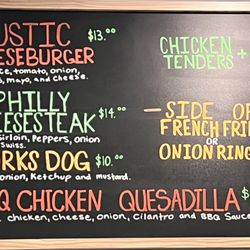 USTIC $13.00
ESEBURGER
ce, tomato, onion,
s, mayo, and cheese.
PHILLY
ESESTEAK $14.00
Sirloin, Peppers, onion
Swiss.
RKS DOG $10.00
onion, Ketchup and mustard.
Q CHICKEN QUESADILLA $
chicken, cheese, onion, Cilantro and BBQ Sauce
CHICKEN
TENDERS +
- SIDE OF
FRENCH FRI
OR
ONION RING